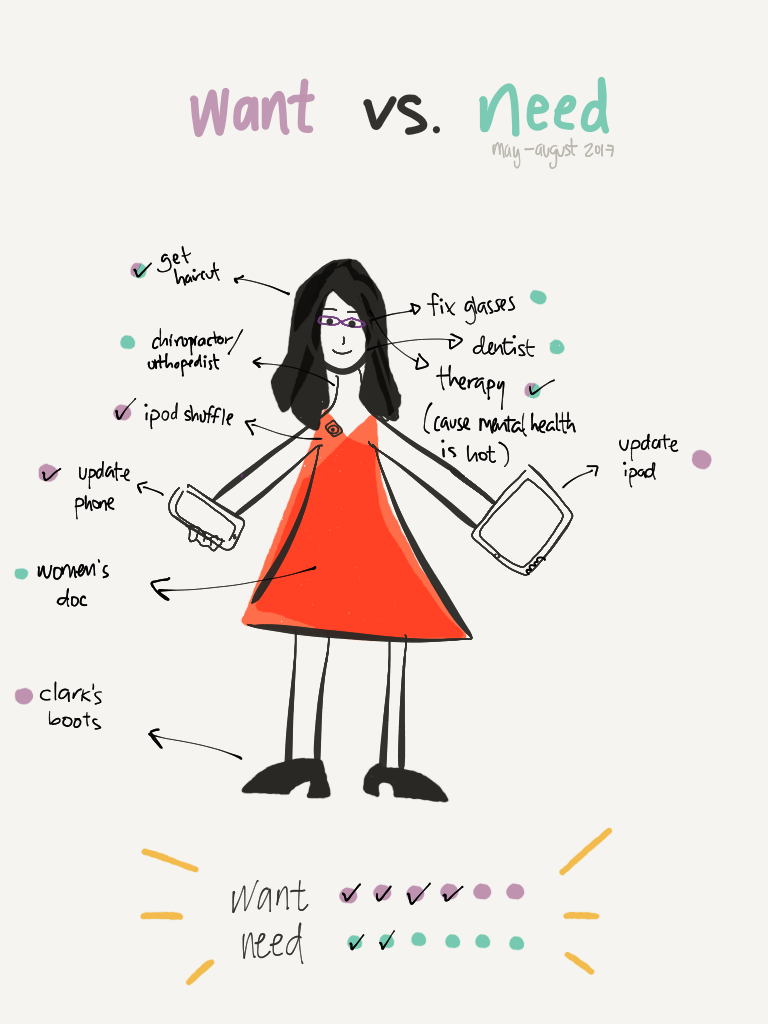 want vs. need
may-august 2017
get
haircut
fix glasses
chiropractor/
orthopedist
dentist
therapy
(cause mental health
is hot)
ipod shuffle
update
ipad
update
phone
women's
doc
clark's
boots
want
need